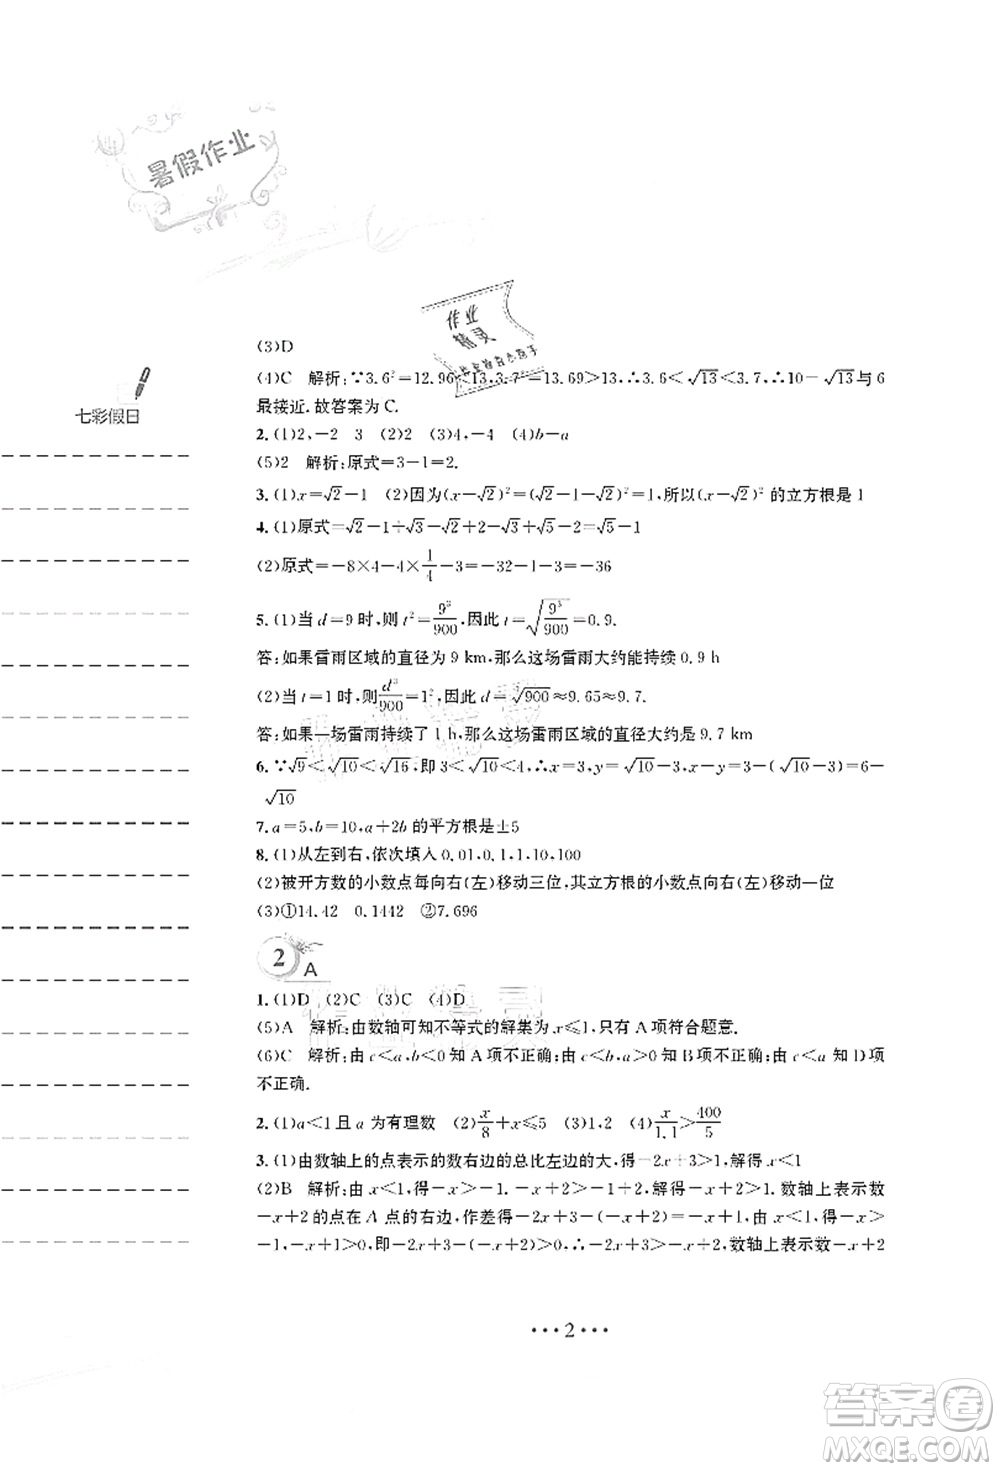 暑假作业
作业
精灵
七彩假日
(3)D
(4)C 解析:∵3.6²=12.96<13,3.7²=13.69>13,∴3.6<√13<3.7,∴10-√13与6
最接近.故答案为C.
2.(1)2,-2 3 (2)2 (3)4,-4 (4)b-a
(5)2 解析:原式=3-1=2.
3.(1)x=√2-1 (2)因为(x-√2)²=(√2-1-√2)²=1,所以(x-√2)²的立方根是1
4.(1)原式=√2-1+√3-√2+2-√3+√5-2=√5-1
(2)原式=-8×4-4×1/4-3=-32-1-3=-36
5.(1)当d=9时,则t²=9³/900,因此t=√(9³/900)=0.9.
答:如果雷雨区域的直径为9 km,那么这场雷雨大约能持续0.9 h
(2)当t=1时,则d³/900=1²,因此d=∛900≈9.65≈9.7.
答:如果一场雷雨持续了1 h,那么这场雷雨区域的直径大约是9.7 km
6.∵√9<√10<√16,即3<√10<4,∴x=3,y=√10-3,x-y=3-(√10-3)=6-
√10
7.a=5,b=10,a+2b的平方根是±5
8.(1)从左到右,依次填入0.01,0.1,1,10,100
(2)被开方数的小数点每向右(左)移动三位,其立方根的小数点向右(左)移动一位
(3)①14.42 0.1442 ②7.696
2 A
1.(1)D (2)C (3)C (4)D
(5)A 解析:由数轴可知不等式的解集为x≤1,只有A项符合题意.
(6)C 解析:由c<a,b<0知A项不正确;由c<b,a>0知B项不正确;由c<a知D项
不正确.
2.(1)a<1且a为有理数 (2)x/8+x≤5 (3)1,2 (4)x/1.1>400/5
3.(1)由数轴上的点表示的数右边的总比左边的大,得-2x+3>1,解得x<1
(2)B 解析:由x<1,得-x>-1.-x+2>-1+2,解得-x+2>1.数轴上表示数
-x+2的点在A点的右边,作差得-2x+3-(-x+2)=-x+1,由x<1,得-x>
-1,-x+1>0,即-2x+3-(-x+2)>0,∴-2x+3>-x+2,数轴上表示数-x+2
···2···
答案圈
MXQE.COM